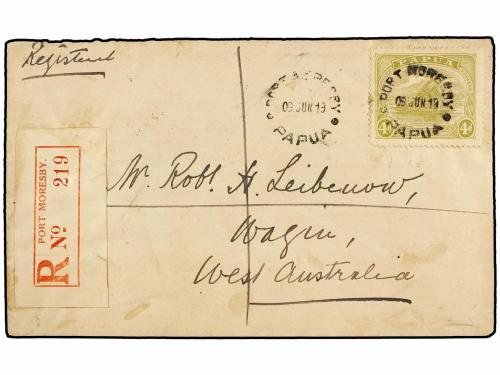 Registered
PORT MORESBY
09 JUN 19
PAPUA
PAPUA
4d 4d
PORT MORESBY
09 JUN 19
PAPUA
R PORT MORESBY.
No 219
Mr. Robt. H. Leibenow,
Wagin,
West Australia